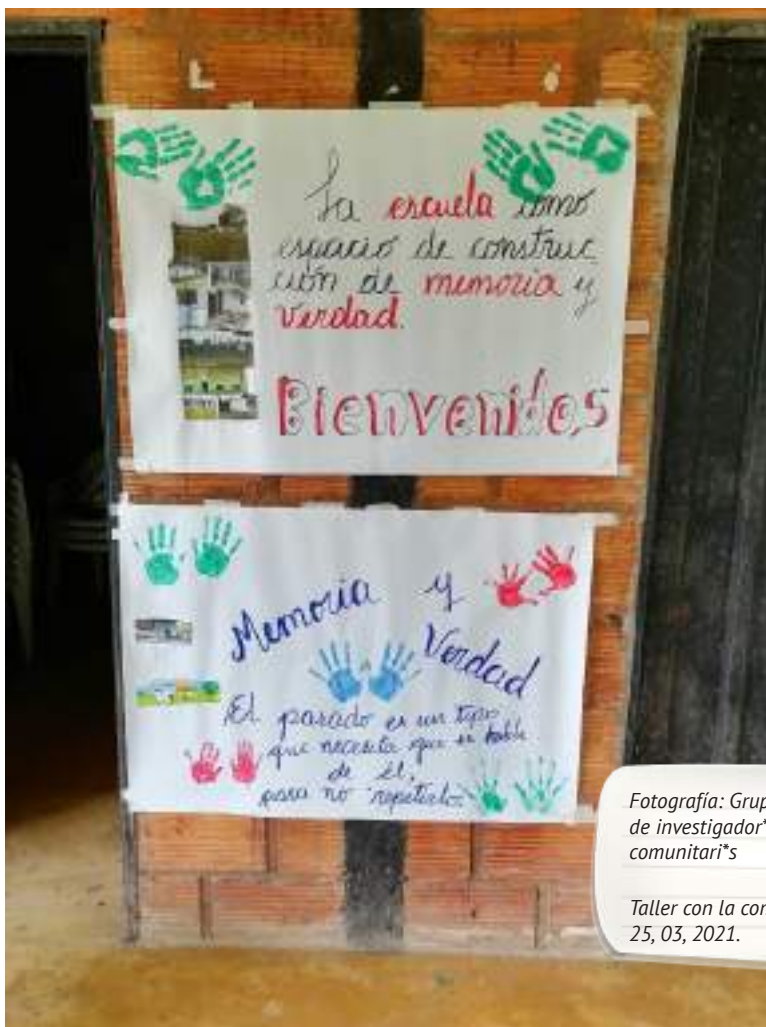 La escuela como
espacio de construc
ción de memoria y
verdad.
Bienvenidos
Memoria y
Verdad
El pasado es un tipo
que necesita que se hable
de él,
para no repetirlo
Fotografía: Grup
de investigador*
comunitari*s
Taller con la con
25, 03, 2021.